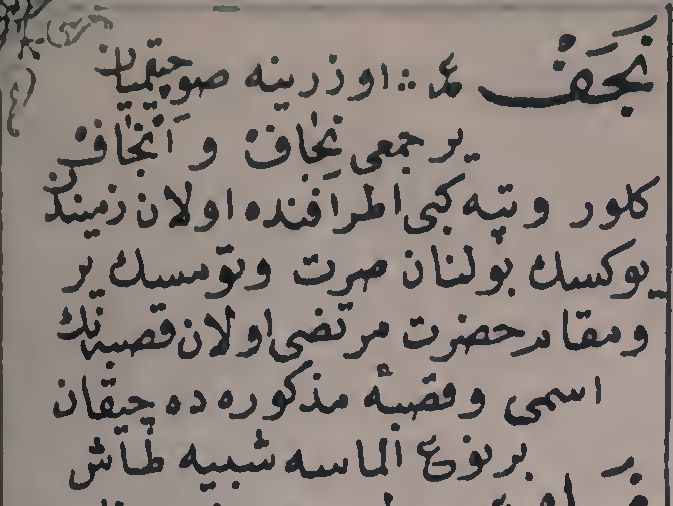 نجف ع :: اوزرينه صو چيقميان
ير جمعى نجاف و آنجاف
كلور و تپه كبى اطرافنده اولان زميندن
يوكسك بولنان صرت و تومسك ير
و مقامر حضرت مرتضى اولان قصبه نك
اسمى و قصبۀ مذكوره ده چيقان
بر نوع الماسه شبيه طاش